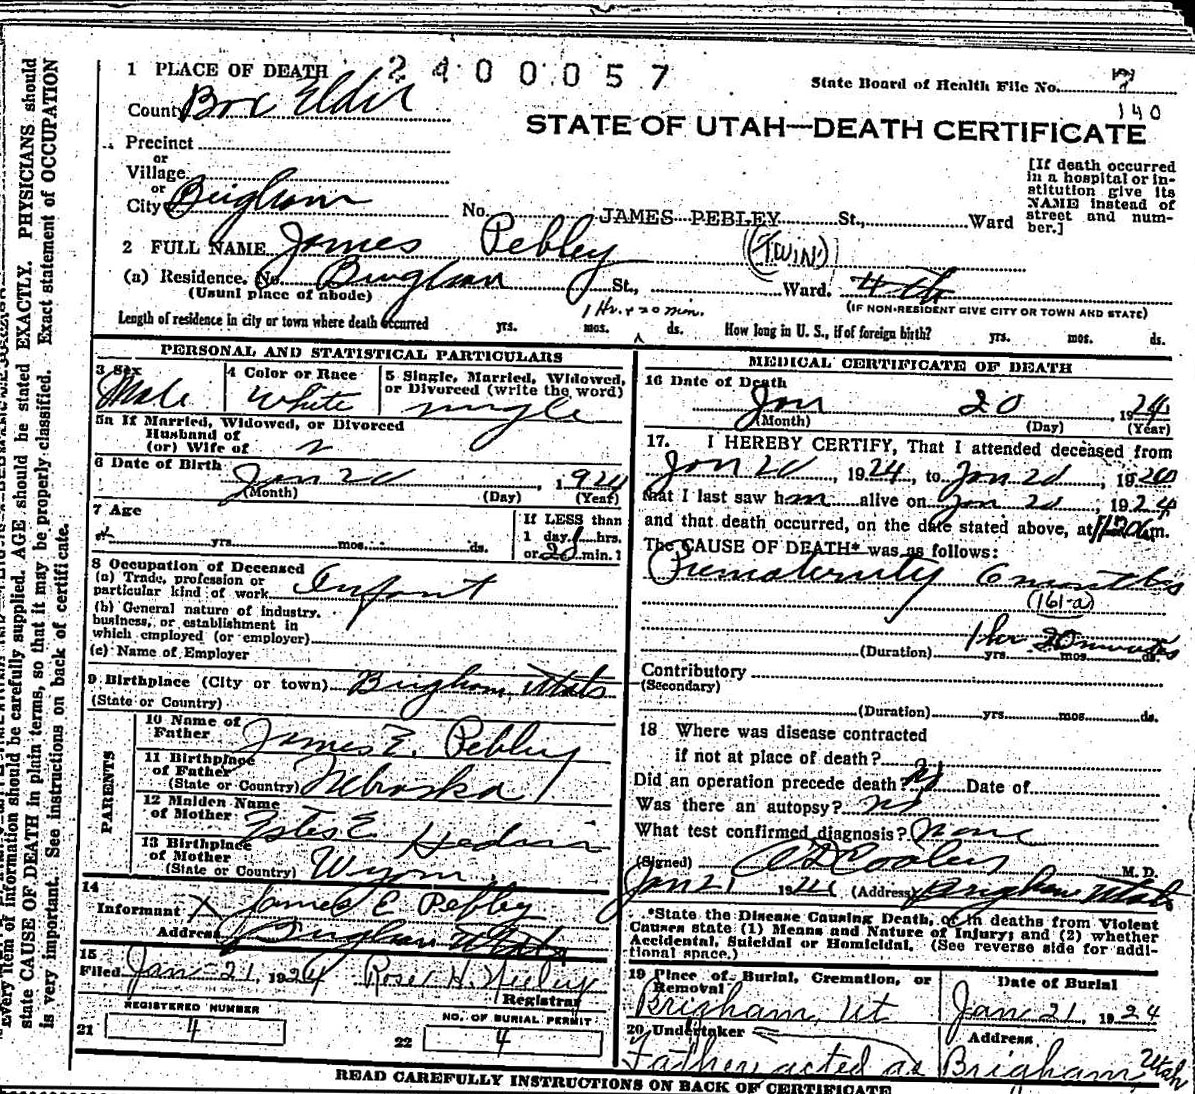 1 PLACE OF DEATH 2400057
State Board of Health File No. 7
140
County Box Elder
STATE OF UTAH—DEATH CERTIFICATE
Precinct
or
Village
or
City Brigham
No. JAMES PEBLEY St., Ward
[If death occurred in a hospital or institution give its NAME instead of street and number.]
2 FULL NAME James Pebley (TWIN)
(a) Residence. No. Brigham St., Ward. 4th
(Usual place of abode)
(IF NON-RESIDENT GIVE CITY OR TOWN AND STATE)
1 Hr. + 20 min.
Length of residence in city or town where death occurred yrs. mos. ds. How long in U. S., if of foreign birth? yrs. mos. ds.
PERSONAL AND STATISTICAL PARTICULARS
3 Sex Male
4 Color or Race White
5 Single, Married, Widowed, or Divorced (write the word) single
5a If Married, Widowed, or Divorced
Husband of
(or) Wife of
6 Date of Birth Jan 20, 1924
(Month) (Day) (Year)
7 Age yrs. mos. ds.
If LESS than
1 day, 1 hrs.
or 20 min.?
8 Occupation of Deceased
(a) Trade, profession or
particular kind of work Infant
(b) General nature of industry.
business, or establishment in
which employed (or employer)
(c) Name of Employer
9 Birthplace (City or town) Brigham Utah
(State or Country)
PARENTS
10 Name of Father James E. Pebley
11 Birthplace of Father (State or Country) Nebraska
12 Maiden Name of Mother
13 Birthplace of Mother (State or Country) Wyom.
14
Informant X James E Pebley
Address Brigham Utah
15
Filed Jan-21, 1924 Rose H. Neeley
Registrar
REGISTERED NUMBER
21 4
NO. OF BURIAL PERMIT
22 4
MEDICAL CERTIFICATE OF DEATH
16 Date of Death
Jan 20, 1924
(Month) (Day) (Year)
17. I HEREBY CERTIFY, That I attended deceased from
Jan 20 1924, to Jan 20, 1920
that I last saw him alive on Jan 20, 1924
and that death occurred, on the date stated above, at m.
The CAUSE OF DEATH* was as follows:
Prematurity 6 months
(161-a)
1 hr 20 minutes
(Duration) yrs. mos. ds.
Contributory
(Secondary)
(Duration) yrs. mos. ds.
18 Where was disease contracted
if not at place of death?
Did an operation precede death? no Date of
Was there an autopsy? no
What test confirmed diagnosis? none
(Signed) A D Cooley M. D.
Jan 21 1924 (Address) Brigham Utah
*State the Disease Causing Death, or in deaths from Violent
Causes state (1) Means and Nature of Injury; and (2) whether
Accidental, Suicidal or Homicidal. (See reverse side for addi-
tional space.)
19 Place of Burial, Cremation, or Removal
Brigham, Ut
Date of Burial
Jan 21, 1924
20 Undertaker
Father acted as
Address
Brigham, Utah
READ CAREFULLY INSTRUCTIONS ON BACK OF CERTIFICATE
Every item of information should be carefully supplied. AGE should be stated EXACTLY. PHYSICIANS should
state CAUSE OF DEATH in plain terms, so that it may be properly classified. Exact statement of OCCUPATION
is very important. See instructions on back of certificate.